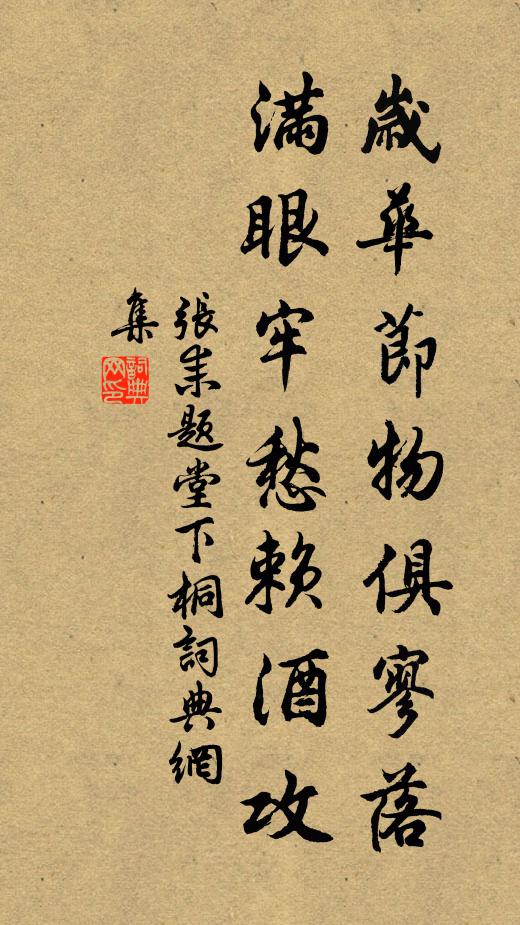 歲華節物俱寥落
滿眼牢愁賴酒攻
張耒題堂下桐詞典網
集
詞典
网印